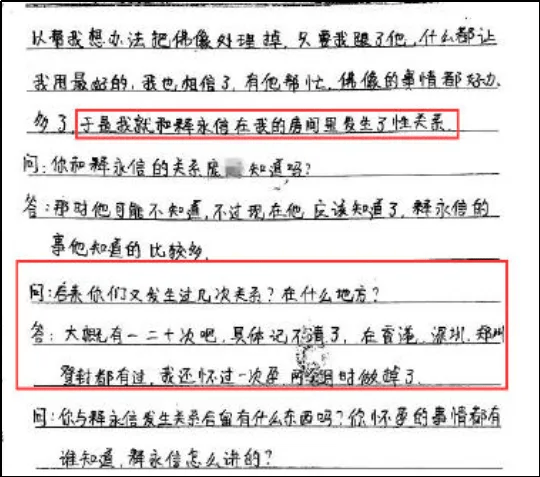 以帮我想办法把佛像处理掉,只要我跟了他,什么都让
我用最好的,我也相信了,有他帮忙,佛像的事情都好办
多了,于是我就和释永信在我的房间里发生了性关系.
问:你和释永信的关系庞 知道吗?
答:那时他可能不知道,不过现在他应该知道了,释永信的
事他知道的比较多.
问:后来你们又发生过几次关系?在什么地方?
答:大概有一二十次吧,具体记不清了,在香港、深圳、郑州
登封都有过,我还怀过一次孕,两个月时做掉了.
问:你与释永信发生关系后留有什么东西吗?你怀孕的事情都有
谁知道,释永信怎么讲的?